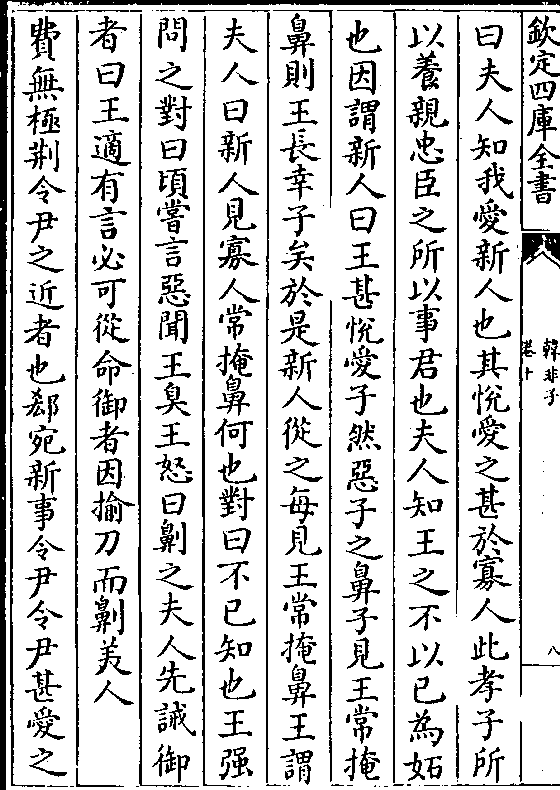 欽定四庫全書
韓非子
卷十
八
曰夫人知我愛新人也其悅愛之甚於寡人此孝子所
以養親忠臣之所以事君也夫人知王之不以已為妬
也因謂新人曰王甚悅愛子然惡子之鼻子見王常掩
鼻則王長幸子矣於是新人從之每見王常掩鼻王謂
夫人曰新人見寡人常掩鼻何也對曰不已知也王强
問之對曰頃嘗言惡聞王臭王怒曰劓之夫人先誡御
者曰王適有言必可從命御者因揄刀而劓美人
費無極荆令尹之近者也郄宛新事令尹令尹甚愛之